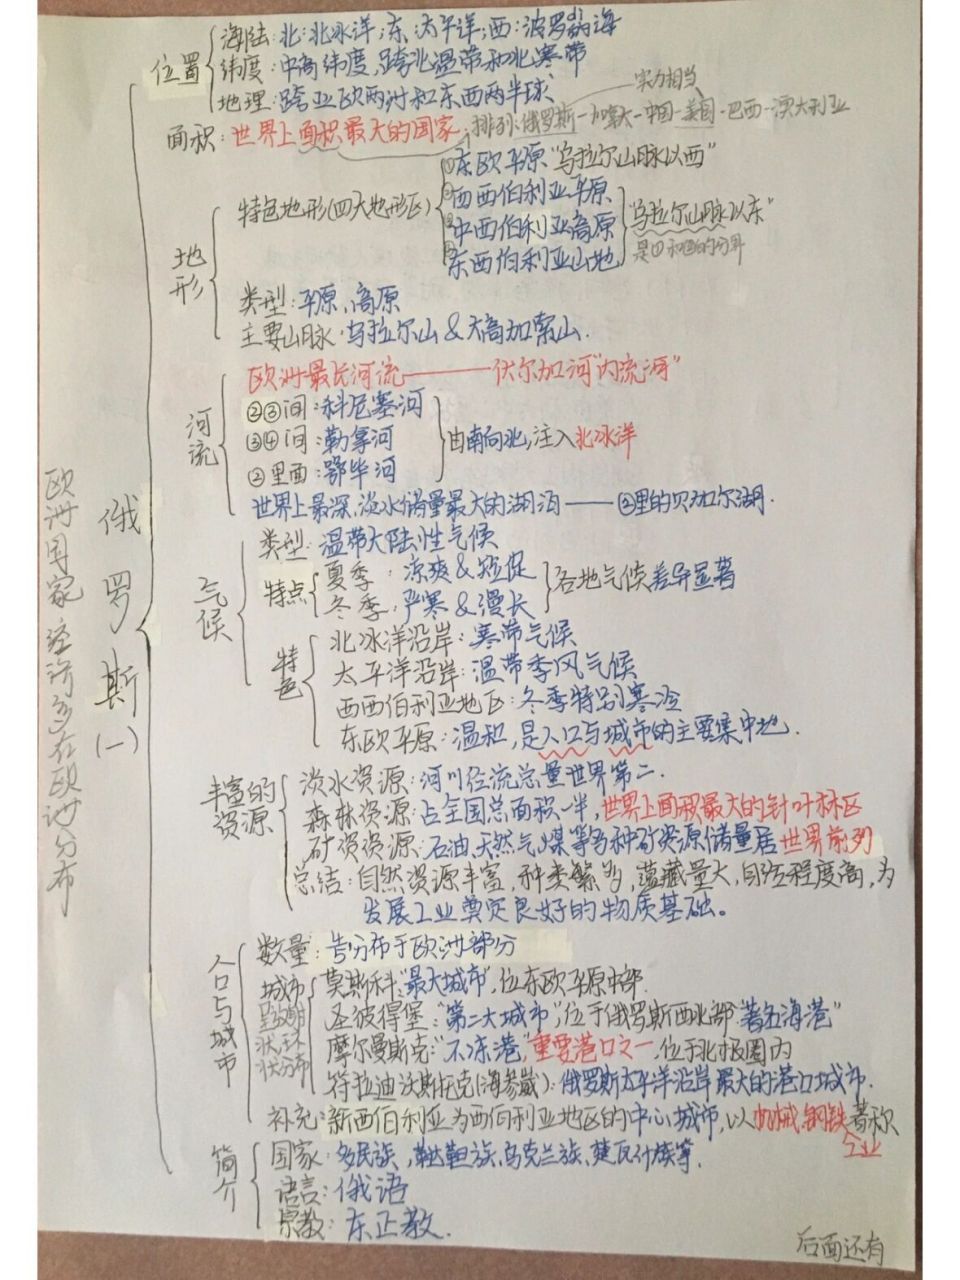 海陆:北:北冰洋;东:太平洋;西:波罗的海
位置 纬度:中高纬度,跨北温带和北寒带
地理:跨亚欧两洲和东西两半球
实力相当
面积:世界上面积最大的国家,排列:俄罗斯-加拿大-中国-美国-巴西-澳大利亚
①东欧平原“乌拉尔山脉以西”
②西西伯利亚平原
特色地形(四大地形区)
③中西伯利亚高原 “乌拉尔山脉以东”
④东西伯利亚山地
地形
类型:平原、高原
主要山脉:乌拉尔山&大高加索山.
欧洲最长河流———伏尔加河“内流河”
②③间:科尼塞河
河流 ③④间:勒拿河 由南向北,注入北冰洋
②里面:鄂毕河
世界上最深,淡水储量最大的湖泊——③里的贝加尔湖.
欧洲国家 经济多在欧洲分布
俄罗斯(一)
类型:温带大陆性气候
气候 特点 夏季:凉爽&短促 各地气候差异显著
冬季:严寒&漫长
特色 北冰洋沿岸:寒带气候
太平洋沿岸:温带季风气候
西西伯利亚地区:冬季特别寒冷
东欧平原:温和,是人口与城市的主要集中地.
丰富的资源 淡水资源:河川径流总量世界第二.
森林资源:占全国总面积一半,世界上面积最大的针叶林区
矿资资源:石油、天然气、煤等多种矿资源储量居世界前列
总结:自然资源丰富,种类繁多,蕴藏量大,自给程度高,为
发展工业奠定良好的物质基础。
人口与城市 数量:分布于欧洲部分
城市 莫斯科:“最大城市”,位东欧平原中部.
圣彼得堡:“第二大城市”,位于俄罗斯西北部“著名海港”
状分布 摩尔曼斯克:“不冻港”,重要港口之一,位于北极圈内
符拉迪沃斯托克(海参崴):俄罗斯太平洋沿岸最大的港口城市.
补充:新西伯利亚为西伯利亚地区的中心城市,以机械、钢铁著称
工业
简介 国家:多民族,鞑靼族、乌克兰族、楚瓦什族等.
语言:俄语
宗教:东正教.
后面还有